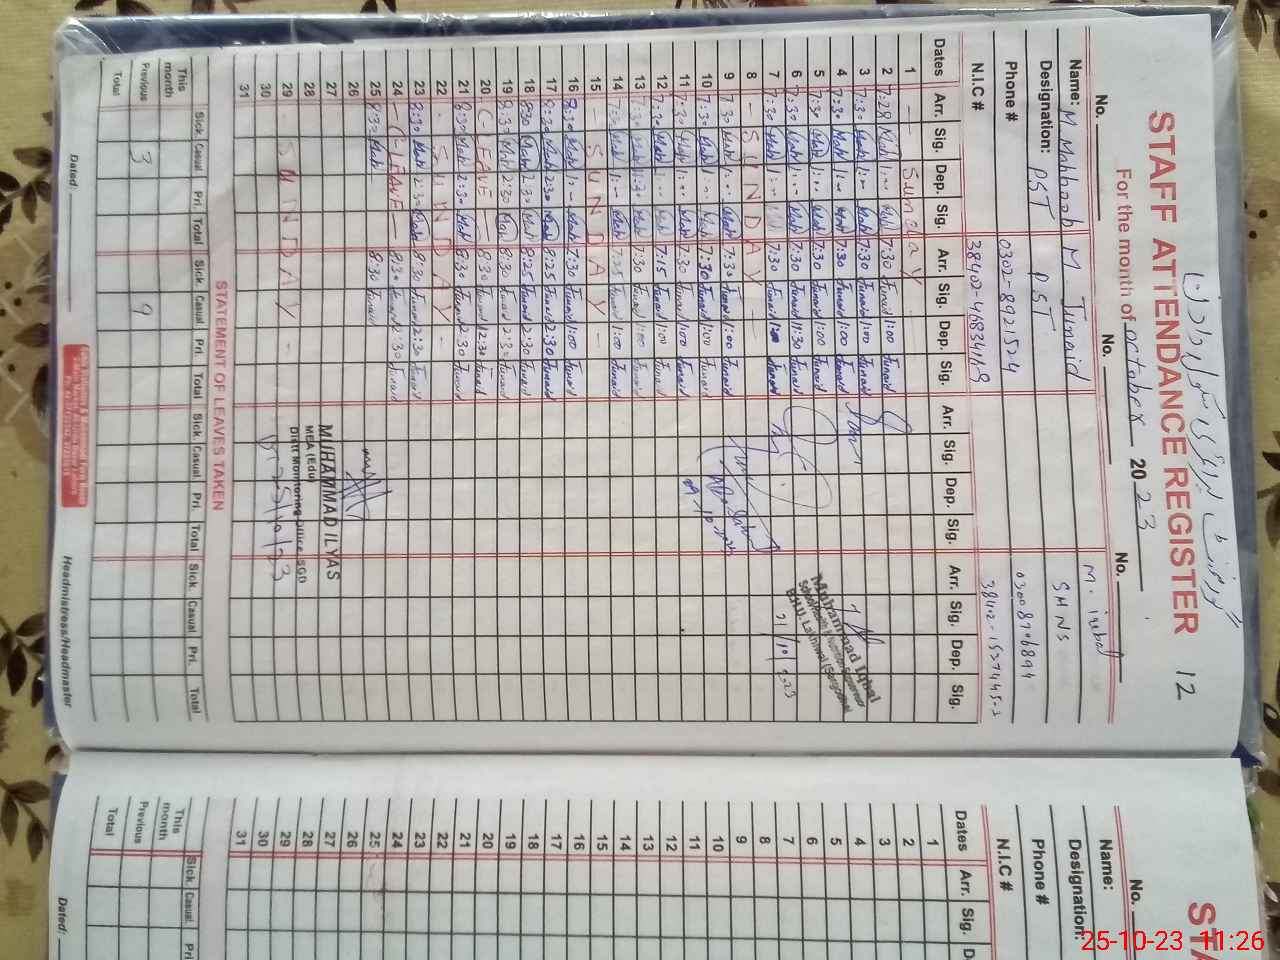 STAFF ATTENDANCE REGISTER 12
For the month of october 2023
No. No. No.
Name: M Mahboob M. Junaid M. iqbal
Designation: PST PST SHNS
Phone # 0302-8921524 03008706894
N.I.C #
Dates Arr. Sig. Dep. Sig. Arr. Sig. Dep. Sig. Arr. Sig. Dep. Sig. Arr. Sig. Dep. Sig.
1 - Sunday -
2 7:28 1:00 7:30 Junaid 1:00 Junaid
3 7:30 Mahb 1:00 Mahb 7:30 Junaid 1:00 Junaid
4 7:30 Mahb 1:00 Mahb 7:30 Junaid 1:00 Junaid
5 7:30 Mahb 1:00 Mahb 7:30 Junaid 1:00 Junaid
6 7:30 Mahb 1:00 Mahb 7:30 Junaid 11:30 Junaid
7 7:30 Mahb 1:00 7:30 Junaid 1:00 Junaid
8 - SUNDAY -
9 7:30 Mahb 1:00 Mahb 7:30 Junaid 1:00 Junaid
10 7:30 Mahb 1:00 Mahb 7:30 Junaid 1:00 Junaid
11 7:30 Mahb 1:00 Mahb 7:30 Junaid 1:00 Junaid
12 7:30 Mahb 1:00 Mahb 7:15 Junaid 1:00 Junaid
13 7:30 Mahb Mahb 7:30 Junaid 1:00 Junaid
14 Mahb 1:00 Mahb 7:25 Junaid 1:00 Junaid
15 - SUNDAY -
16 8:30 Mahb 1:00 Mahb 7:30 Junaid 1:00 Junaid
17 8:30 Mahb 2:30 Mahb 8:25 Junaid 2:30 Junaid
18 8:30 Mahb 2:30 Mahb 8:25 Junaid 2:30 Junaid
19 8:30 Mahb 2:30 Mahb 8:30 Junaid 2:30 Junaid
20 C-LEAVE - 8:30 Junaid 12:30 Junaid
21 8:30 Mahb 2:30 Mahb 8:30 Junaid 2:30 Junaid
22 - SUNDAY -
23 8:30 Mahb 2:30 Mahb 8:30 Junaid 2:30 Junaid
24 - C-LEAVE - 8:30 Junaid 2:30 Junaid
25 8:30 Mahb 8:30 Junaid
26
27
28
29 - SUNDAY -
30
31
Muhammad Iqbal
School Health & Nutrition Supervisor
B.H.U. Lakhiwal (Sargodha)
21/10/2023
MUHAMMAD ILYAS
MEA (Edu)
Distt Monitoring office SGD
25/10/23
STATEMENT OF LEAVES TAKEN
Sick. Casual Pri. Total Sick. Casual Pri. Total Sick. Casual Pri. Total Sick. Casual Pri. Total
This month
Previous 3 9
Total
Dated: Headmistress/Headmaster
ST
No.
Name:
Designation:
Phone #
N.I.C #
Dates Arr. Sig.
1
2
3
4
5
6
7
8
9
10
11
12
13
14
15
16
17
18
19
20
21
22
23
24
25
26
27
28
29
30
31
Sick. Casual Pri
This month
Previous
Total
Dated:
25-10-23 11:26